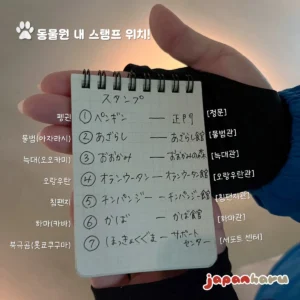 동물원 내 스탬프 위치!
スタンプ
펭귄 ① ペンギン — 正門 [정문]
물범(아자라시) ② あざらし — あざらし館 [물범관]
늑대(오오카미) ③ おおかみ — おおかみの森 [늑대관]
오랑우탄 ④ オランウータン — オランウータン館 [오랑우탄관]
침팬지 ⑤ チンパンジー — チンパンジー館 [침팬지관]
하마(카바) ⑥ かば — かば館 [하마관]
북극곰(홋쿄쿠구마) ⑦ ほっきょくぐま — サポートセンター [서포트 센터]
japanharu